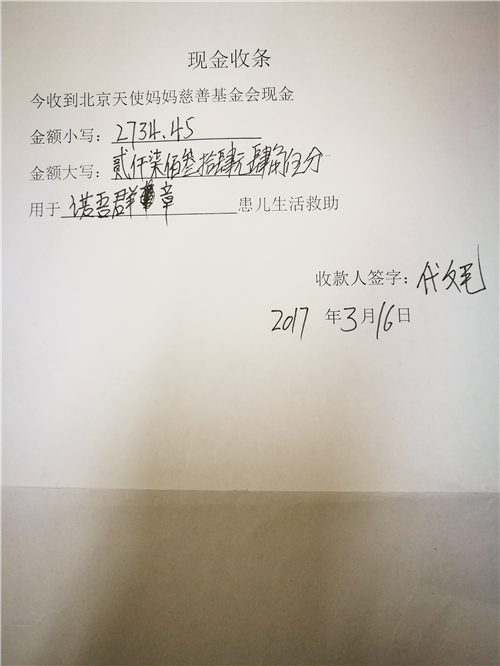 现金收条
今收到北京天使妈妈慈善基金会现金
金额小写：2734.45
金额大写：贰仟柒佰叁拾肆元肆角伍分
用于诺吾群章患儿生活救助
收款人签字：代文
2017年3月16日